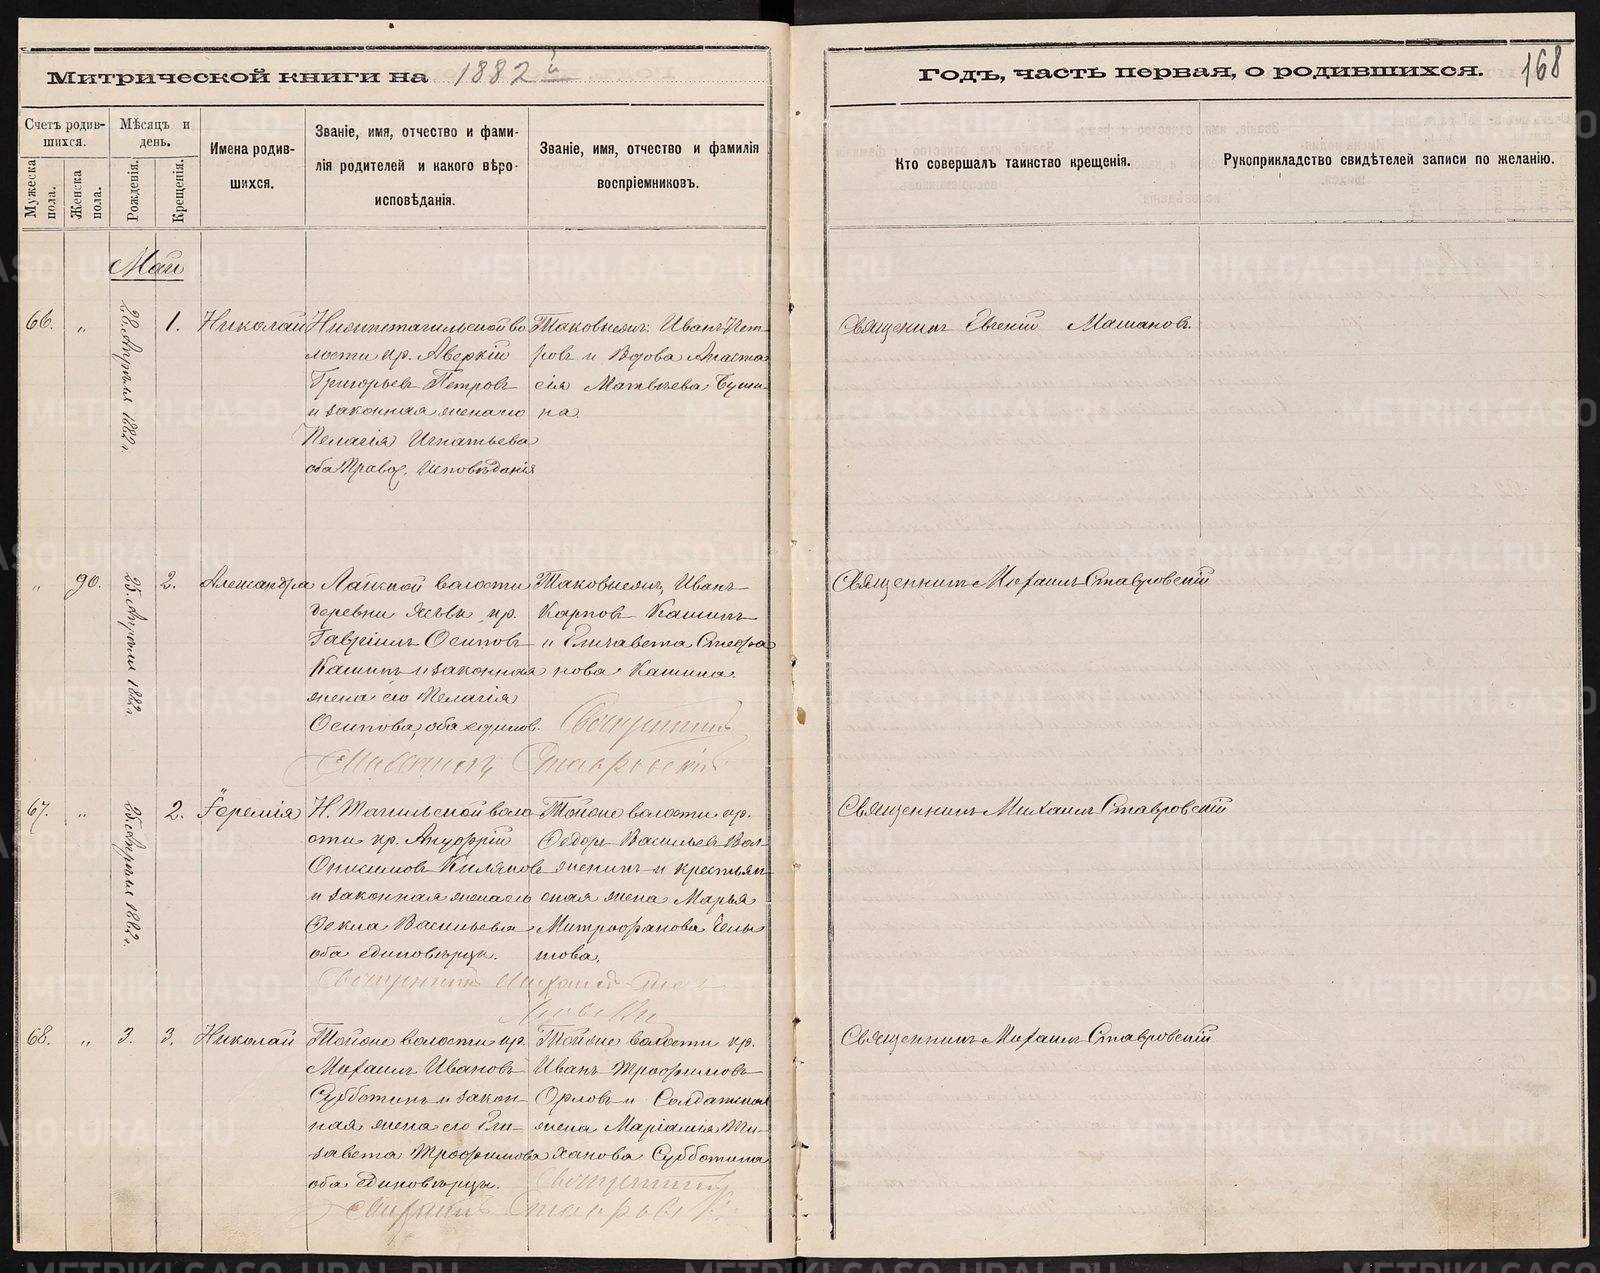 Митрической книги на 1882й
Годъ, часть первая, о родившихся. 168
Счетъ родив-
шихся.
Мужеска
пола.
Женска
пола.
Мѣсяцъ и
день.
Рожденія.
Крещенія.
Имена родив-
шихся.
Званіе, имя, отчество и фами-
лія родителей и какого вѣро-
исповѣданія.
Званіе, имя, отчество и фамилія
воспріемниковъ.
Кто совершалъ таинство крещенія.
Рукоприкладство свидѣтелей записи по желанію.
Май
66.
"
28. Апрѣля 1882 г.
1.
Николай
Нижнетагильской во
лости кр. Аверкій
Григорьевъ Петровъ
и законная жена его
Пелагія Игнатьева
оба Правос. исповѣданія
Таковыежъ: Иванъ Пет-
ровъ и Вдова Анаста
сія Матвѣева
на
Священникъ Евгеній
"
90.
25. Апрѣля 1882 г.
2.
Александра
Лайской волости
деревни кр.
Гавріилъ Осиповъ
Кашинъ и законная
жена его Пелагія
Осипова, оба единов.
Таковыежъ, Иванъ
Карповъ Кашинъ
и Елизавета Стефа
нова Кашина.
Священникъ
Михаилъ Ставровскій
Священникъ Михаилъ Ставровскій
67.
"
25. Апрѣля 1882 г.
2.
Іеремія
Н. Тагильской воло
сти кр. Ануфрій
Онисимовъ
и законная жена его
Фекла Васильева
оба единовѣрцы.
Тойже волости кр.
Федоръ Васильевъ
и крестьян-
ская жена Марья
Митрофанова
Священникъ Михаилъ Став-
ровскій
Священникъ Михаилъ Ставровскій
68.
"
3.
3.
Николай
Тойже волости кр.
Михаилъ Ивановъ
Субботинъ и закон-
ная жена его Ели-
завета Трофимова
оба единовѣрцы.
Тойже волости кр.
Иванъ Трофимовъ
Орловъ и Солдатская
жена Маріамія Ти-
ханова Субботина
Священникъ
Михаилъ Ставровскій
Священникъ Михаилъ Ставровскій
METRIKI.GASO-URAL.RU